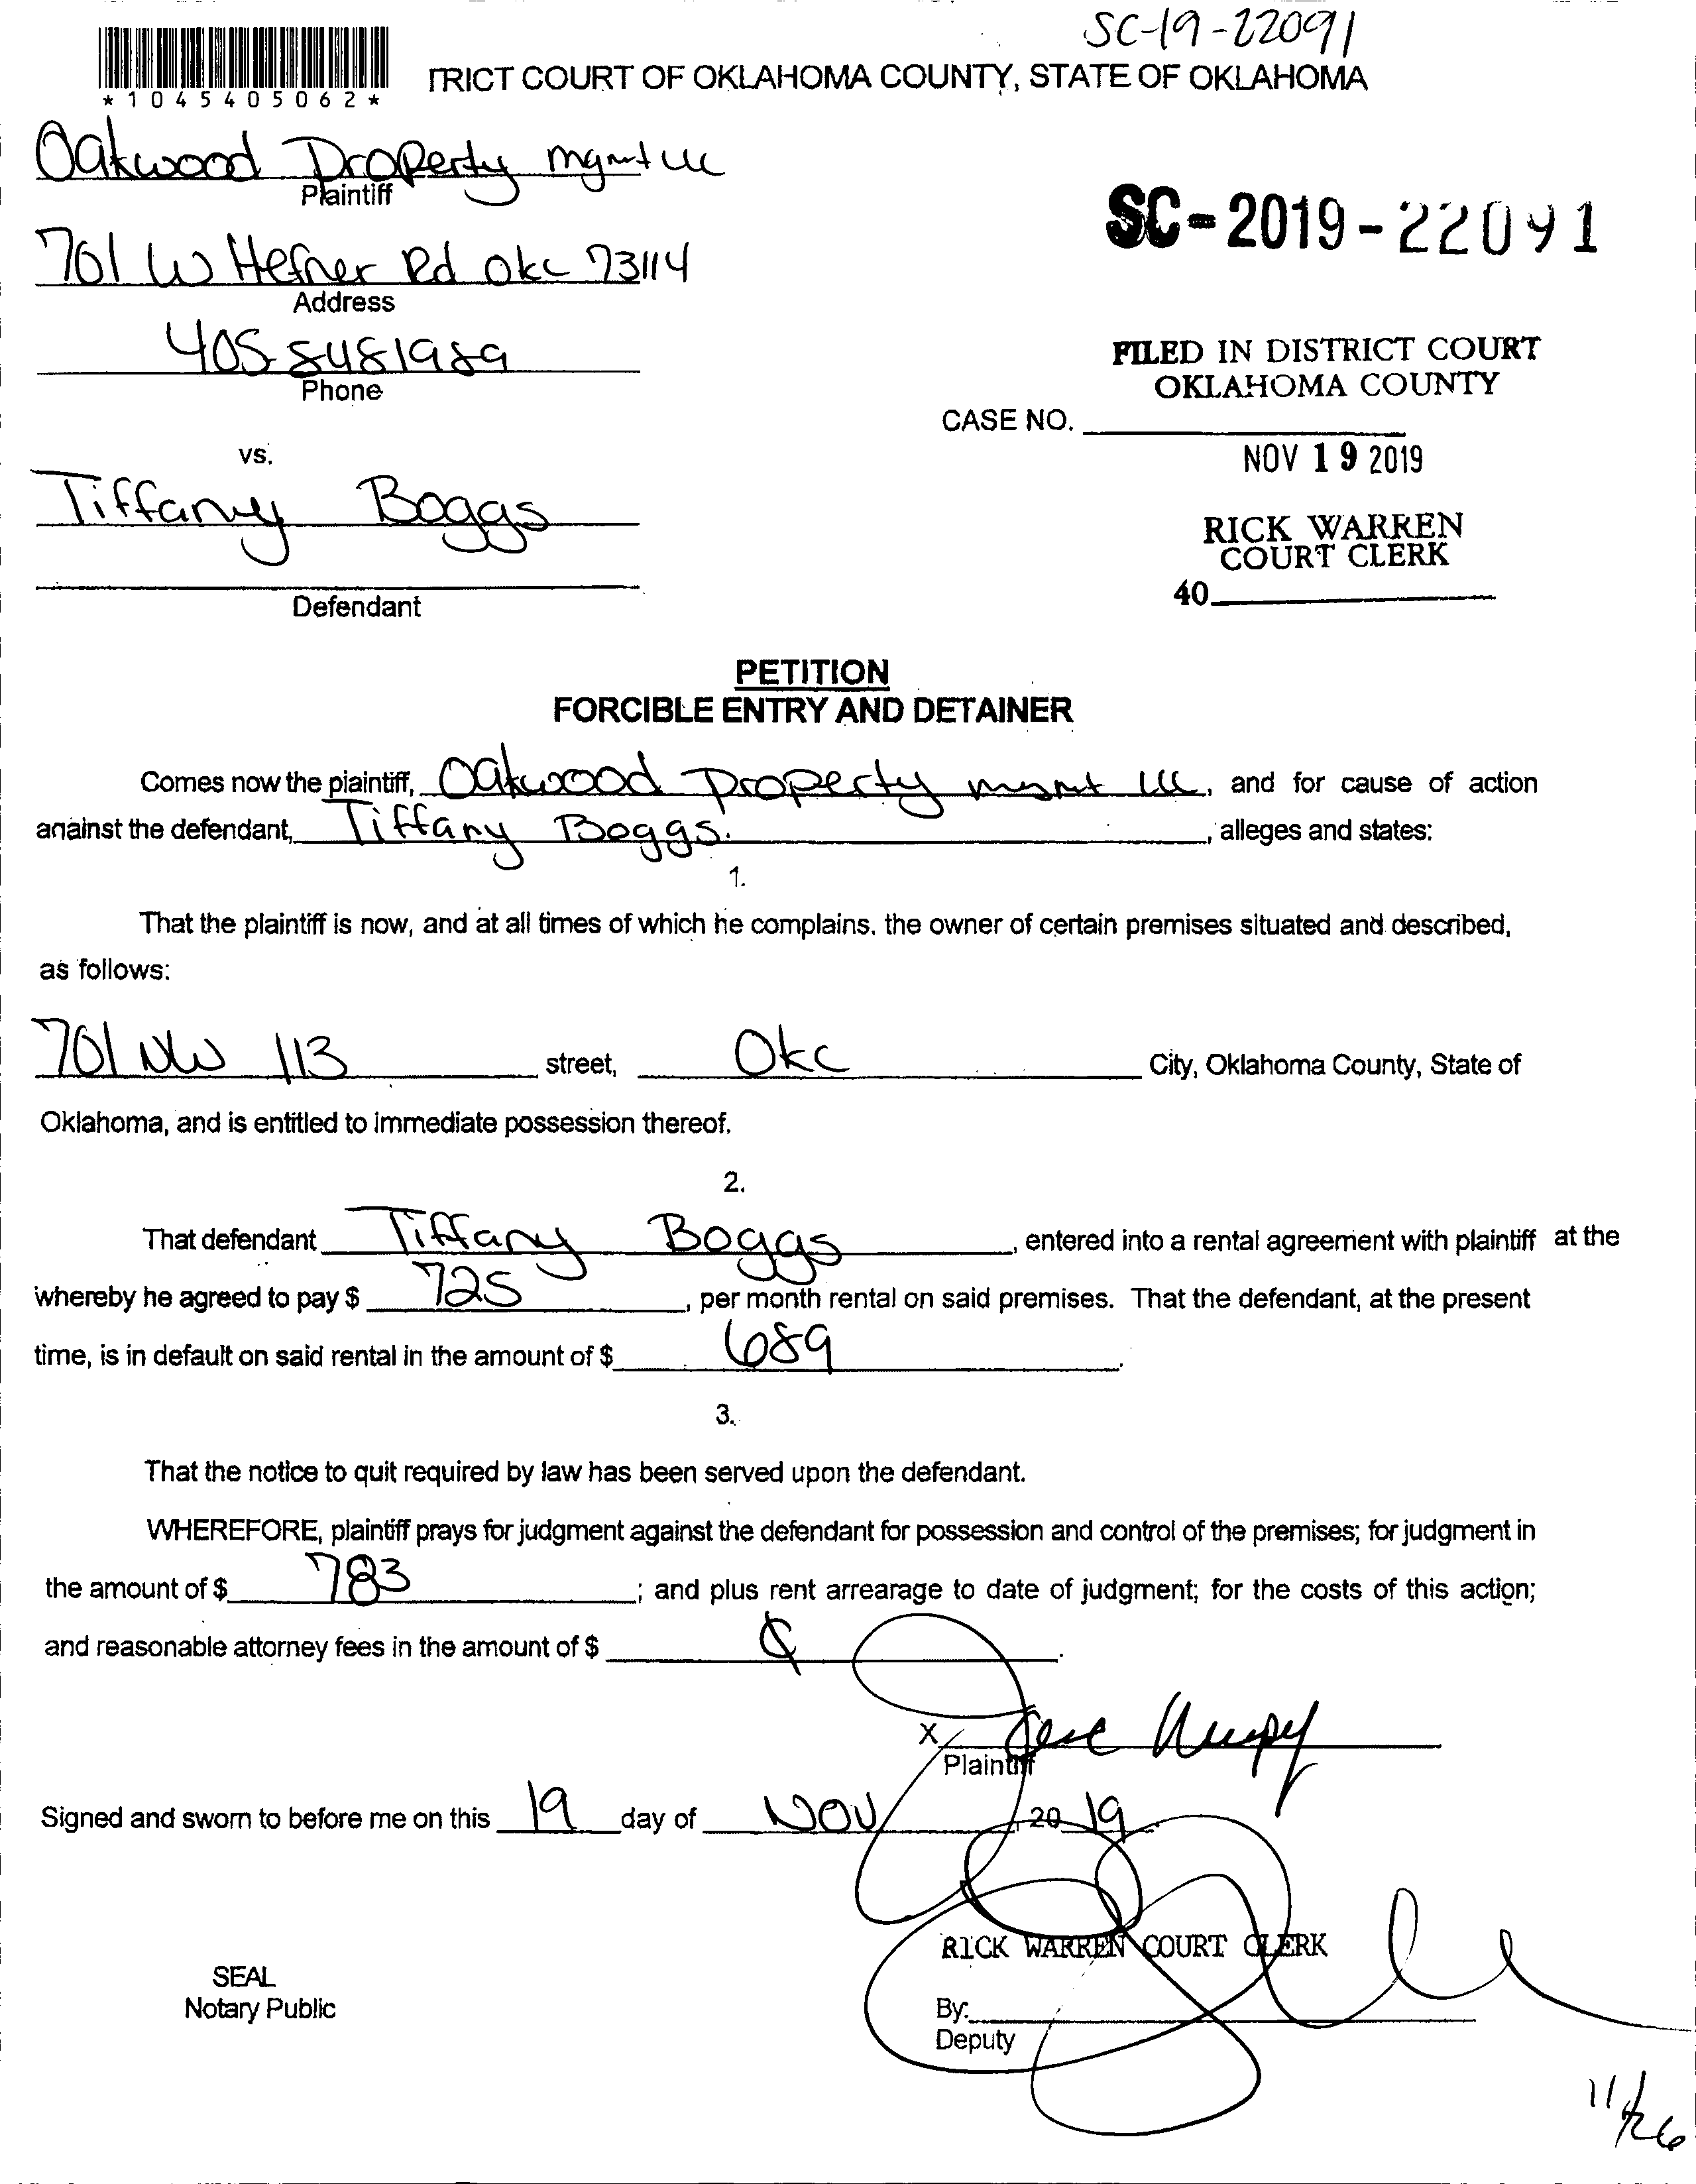 SC-19-22091
*1045405062*
TRICT COURT OF OKLAHOMA COUNTY, STATE OF OKLAHOMA
Oakwood Property mgmt llc
Plaintiff
SC-2019-22091
701 W Hefner Rd Okc 73114
Address
405 8481989
Phone
FILED IN DISTRICT COURT
OKLAHOMA COUNTY
CASE NO.
NOV 19 2019
vs.
Tiffany Boggs
RICK WARREN
COURT CLERK
40
Defendant
PETITION
FORCIBLE ENTRY AND DETAINER
Comes now the plaintiff, Oakwood Property mgmt llc, and for cause of action
against the defendant, Tiffany Boggs., alleges and states:
1.
That the plaintiff is now, and at all times of which he complains, the owner of certain premises situated and described,
as follows:
701 NW 113 street, Okc City, Oklahoma County, State of
Oklahoma, and is entitled to immediate possession thereof.
2.
That defendant Tiffany Boggs, entered into a rental agreement with plaintiff at the
whereby he agreed to pay $ 725, per month rental on said premises. That the defendant, at the present
time, is in default on said rental in the amount of $ 689.
3.
That the notice to quit required by law has been served upon the defendant.
WHEREFORE, plaintiff prays for judgment against the defendant for possession and control of the premises; for judgment in
the amount of $ 783; and plus rent arrearage to date of judgment; for the costs of this action;
and reasonable attorney fees in the amount of $ .
X
Plaintiff
Signed and sworn to before me on this 19 day of Nov, 20 19.
RICK WARREN COURT CLERK
SEAL
Notary Public
By:
Deputy
11/26